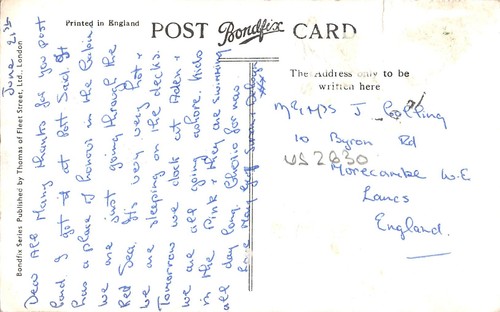 Printed in England
POST Bondfix CARD
Bondfix Series Published by Thomas of Fleet Street, Ltd., London
June 21st
Dear All Many thanks for you post
card I got it at Port Said. It
has a place of honour in the Cabin
We are just going through the
Red Sea. It's very very hot &
we are sleeping on the decks.
Tomorrow we dock at Aden &
we are all going ashore. Kids
in the Pink & they are swimming
all day long. Cheerio for now
Love May
xxx
The Address only to be
written here
Mr & Mrs J
10 Byron Rd
US2630
Morecambe W.E
Lancs
England.